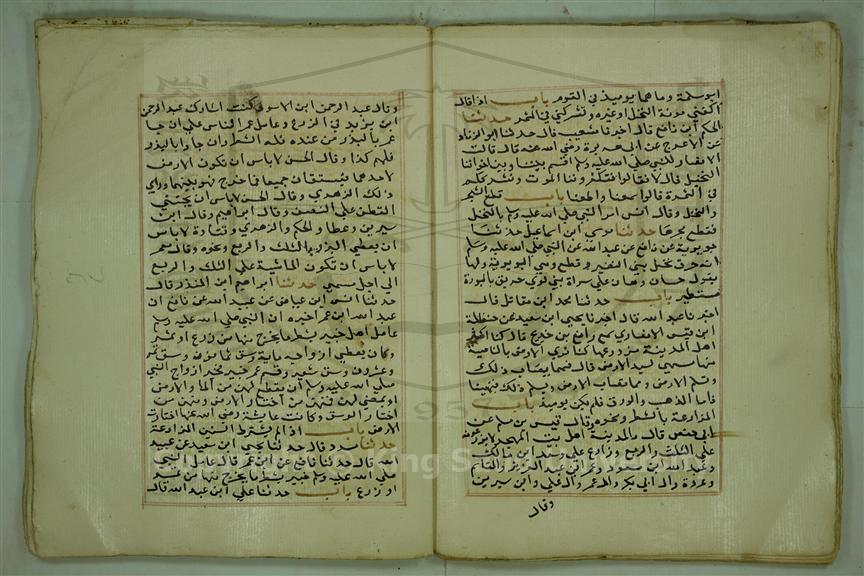 ابوسلمة وما هما يوميذ في القوم باب اذا قال
اكفني مونة النخل او غيره وتشركني في الثمر حدثنا
الحكم ابن نافع قال اخبرنا شعيب قال حدثنا ابو الزناد
عن الاعرج عن ابي هريرة رضي الله عنه قال قالت
الانصار للنبي صلى الله عليه وسلم اقسم بيننا وبين اخواننا
النخيل قال لا فقالوا فتكفوننا المونة ونشرككم
في الثمرة قالوا سمعنا واطعنا باب قطع الشجر
والنخل وقال انس امر النبي صلى الله عليه وسلم بالنخل
فقطع حدثنا موسى ابن اسماعيل حدثنا
جويرية عن نافع عن عبد الله عن النبي صلى الله عليه وسلم
انه حرق نخل بني النضير وقطع وهي البويرة ولها
يقول حسان وهان على سراة بني لوي حريق بالبويرة
مستطير باب حدثنا محمد ابن مقاتل قال
اخبرنا عبد الله قال اخبرنا يحيى ابن سعيد عن حنظلة
ابن قيس الانصاري سمع رافع بن خديج قال كنا اكثر
اهل المدينة مزدرعا كنا نكري الارض بالناحية
منها مسمى لسيد الارض قال فمما يصاب ذلك
وتسلم الارض ومما يصاب الارض ويسلم ذلك فنهينا
فاما الذهب والورق فلم يكن يوميذ باب
المزارعة بالشطر ونحوه وقال قيس بن مسلم عن
ابي جعفر قال ما بالمدينة اهل بيت الهجرة الا يزرعون
على الثلث والربع وزارع علي وسعد ابن مالك
وعبد الله ابن مسعود وعمر ابن عبد العزيز والقاسم
وعروة وال ابي بكر وال عمر وال علي وابن سيرين
وقال
وقال عبد الرحمن ابن الاسود كنت اشارك عبد الرحمن
ابن يزيد في الزرع وعامل عمر الناس على ان جا
عمر بالبذر من عنده فله الشطر وان جاوا بالبذر
فلهم كذا وقال الحسن لا باس ان تكون الارض
لاحدهما فينفقان جميعا فما خرج فهو بينهما وراى
ذلك الزهري وقال الحسن لا باس ان يجتنى
القطن على النصف وقال ابراهيم وقال ابن
سيرين وعطا والحكم والزهري وقتادة لا باس
ان يعطي الثوب بالثلث والربع ونحوه وقال معمر
لا باس ان تكون الماشية على الثلث والربع
الى اجل مسمى حدثنا ابراهيم ابن المنذر قال
حدثنا انس ابن عياض عن عبيد الله عن نافع ان
عبد الله ابن عمر اخبره ان النبي صلى الله عليه وسلم
عامل اهل خيبر بشطر ما يخرج منها من زرع او ثمر
وكان يعطي ازواجه ماية وسق ثمانون وسق تمر
وعشرون وسق شعير وقسم عمر خيبر فخير ازواج النبي
صلى الله عليه وسلم ان يقطع لهن من الما والارض
او يمضي لهن فمنهن من اختار الارض ومنهن من
اختار الوسق وكانت عايشة رضي الله عنها اختارت
الارض باب اذا لم يشترط السنين المزارعة
حدثنا مسدد قال حدثنا يحيى ابن سعيد عن عبيد
الله قال حدثنا نافع عن ابن عمر قال عامل النبي
صلى الله عليه وسلم خيبر بشطر ما يخرج منها من ثمر
او زرع باب حدثنا علي ابن عبد الله قال